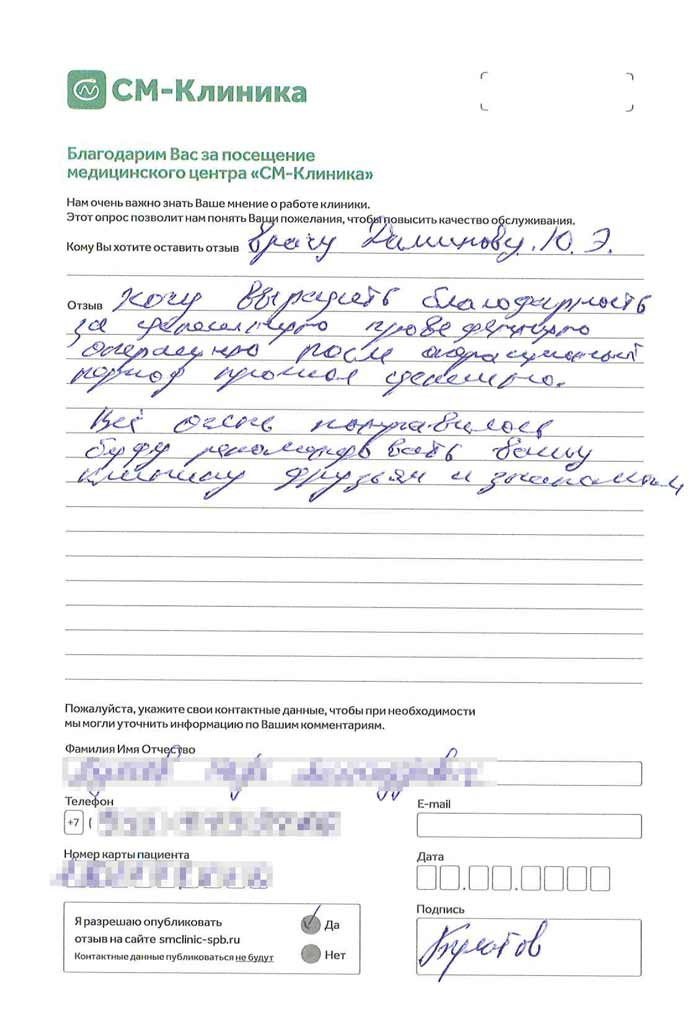 СМ-Клиника
Благодарим Вас за посещение
медицинского центра «СМ-Клиника»
Нам очень важно знать Ваше мнение о работе клиники.
Этот опрос позволит нам понять Ваши пожелания, чтобы повысить качество обслуживания.
Кому Вы хотите оставить отзыв Врачу Даминову. Ю. Э.
Отзыв Хочу выразить благодарность
за проведенную
операцию после операционный
период прошел
Всё очень понравилось
буду рекомендовать вашу
клинику друзьям и знакомым
Пожалуйста, укажите свои контактные данные, чтобы при необходимости
мы могли уточнить информацию по Вашим комментариям.
Фамилия Имя Отчество
Телефон
E-mail
+7 (
Номер карты пациента
Дата
Подпись
Я разрешаю опубликовать
отзыв на сайте smclinic-spb.ru
Контактные данные публиковаться не будут
Да
Нет